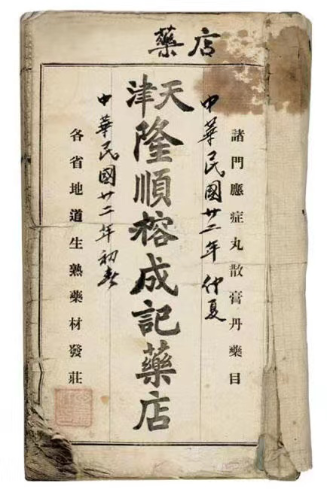 藥店
諸門應症丸散膏丹藥目
中華民國廿二年仲夏
天津
隆順榕成記藥店
中華民國廿二年初
各省地道生熟藥材發莊